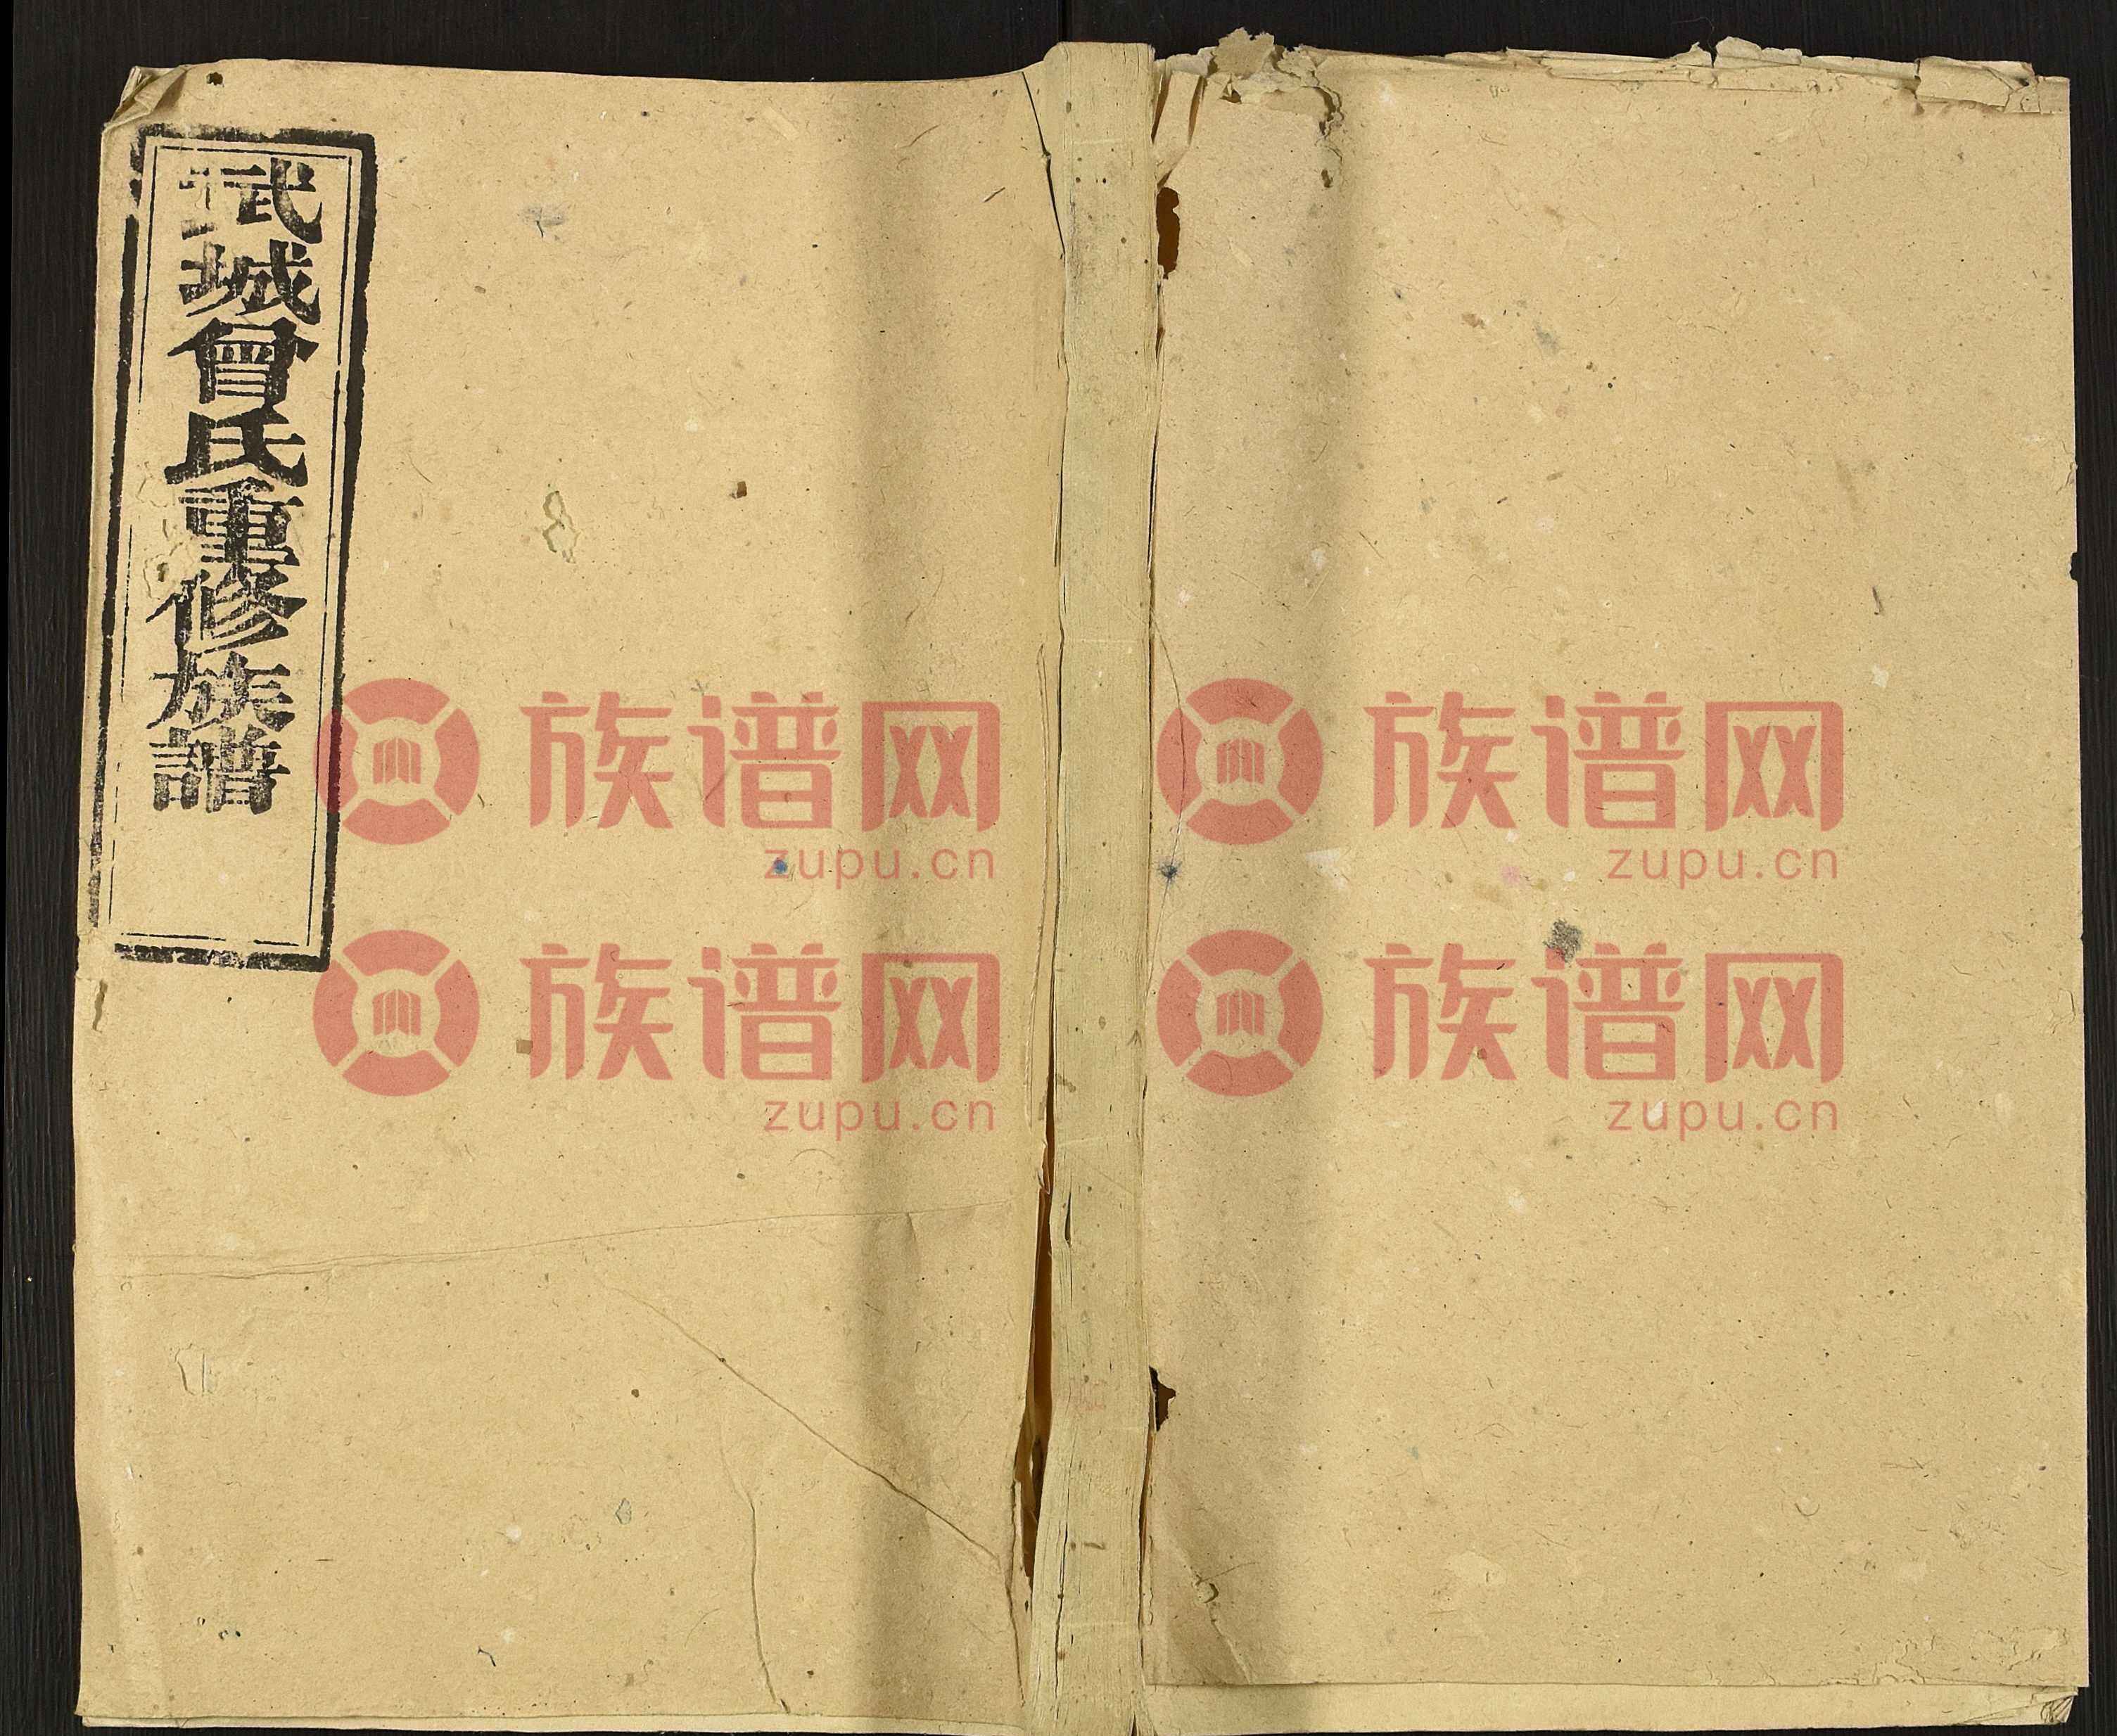 武城曾氏重修族譜
族谱网
zupu.cn
族谱网
zupu.cn
族谱网
zupu.cn
族谱网
zupu.cn